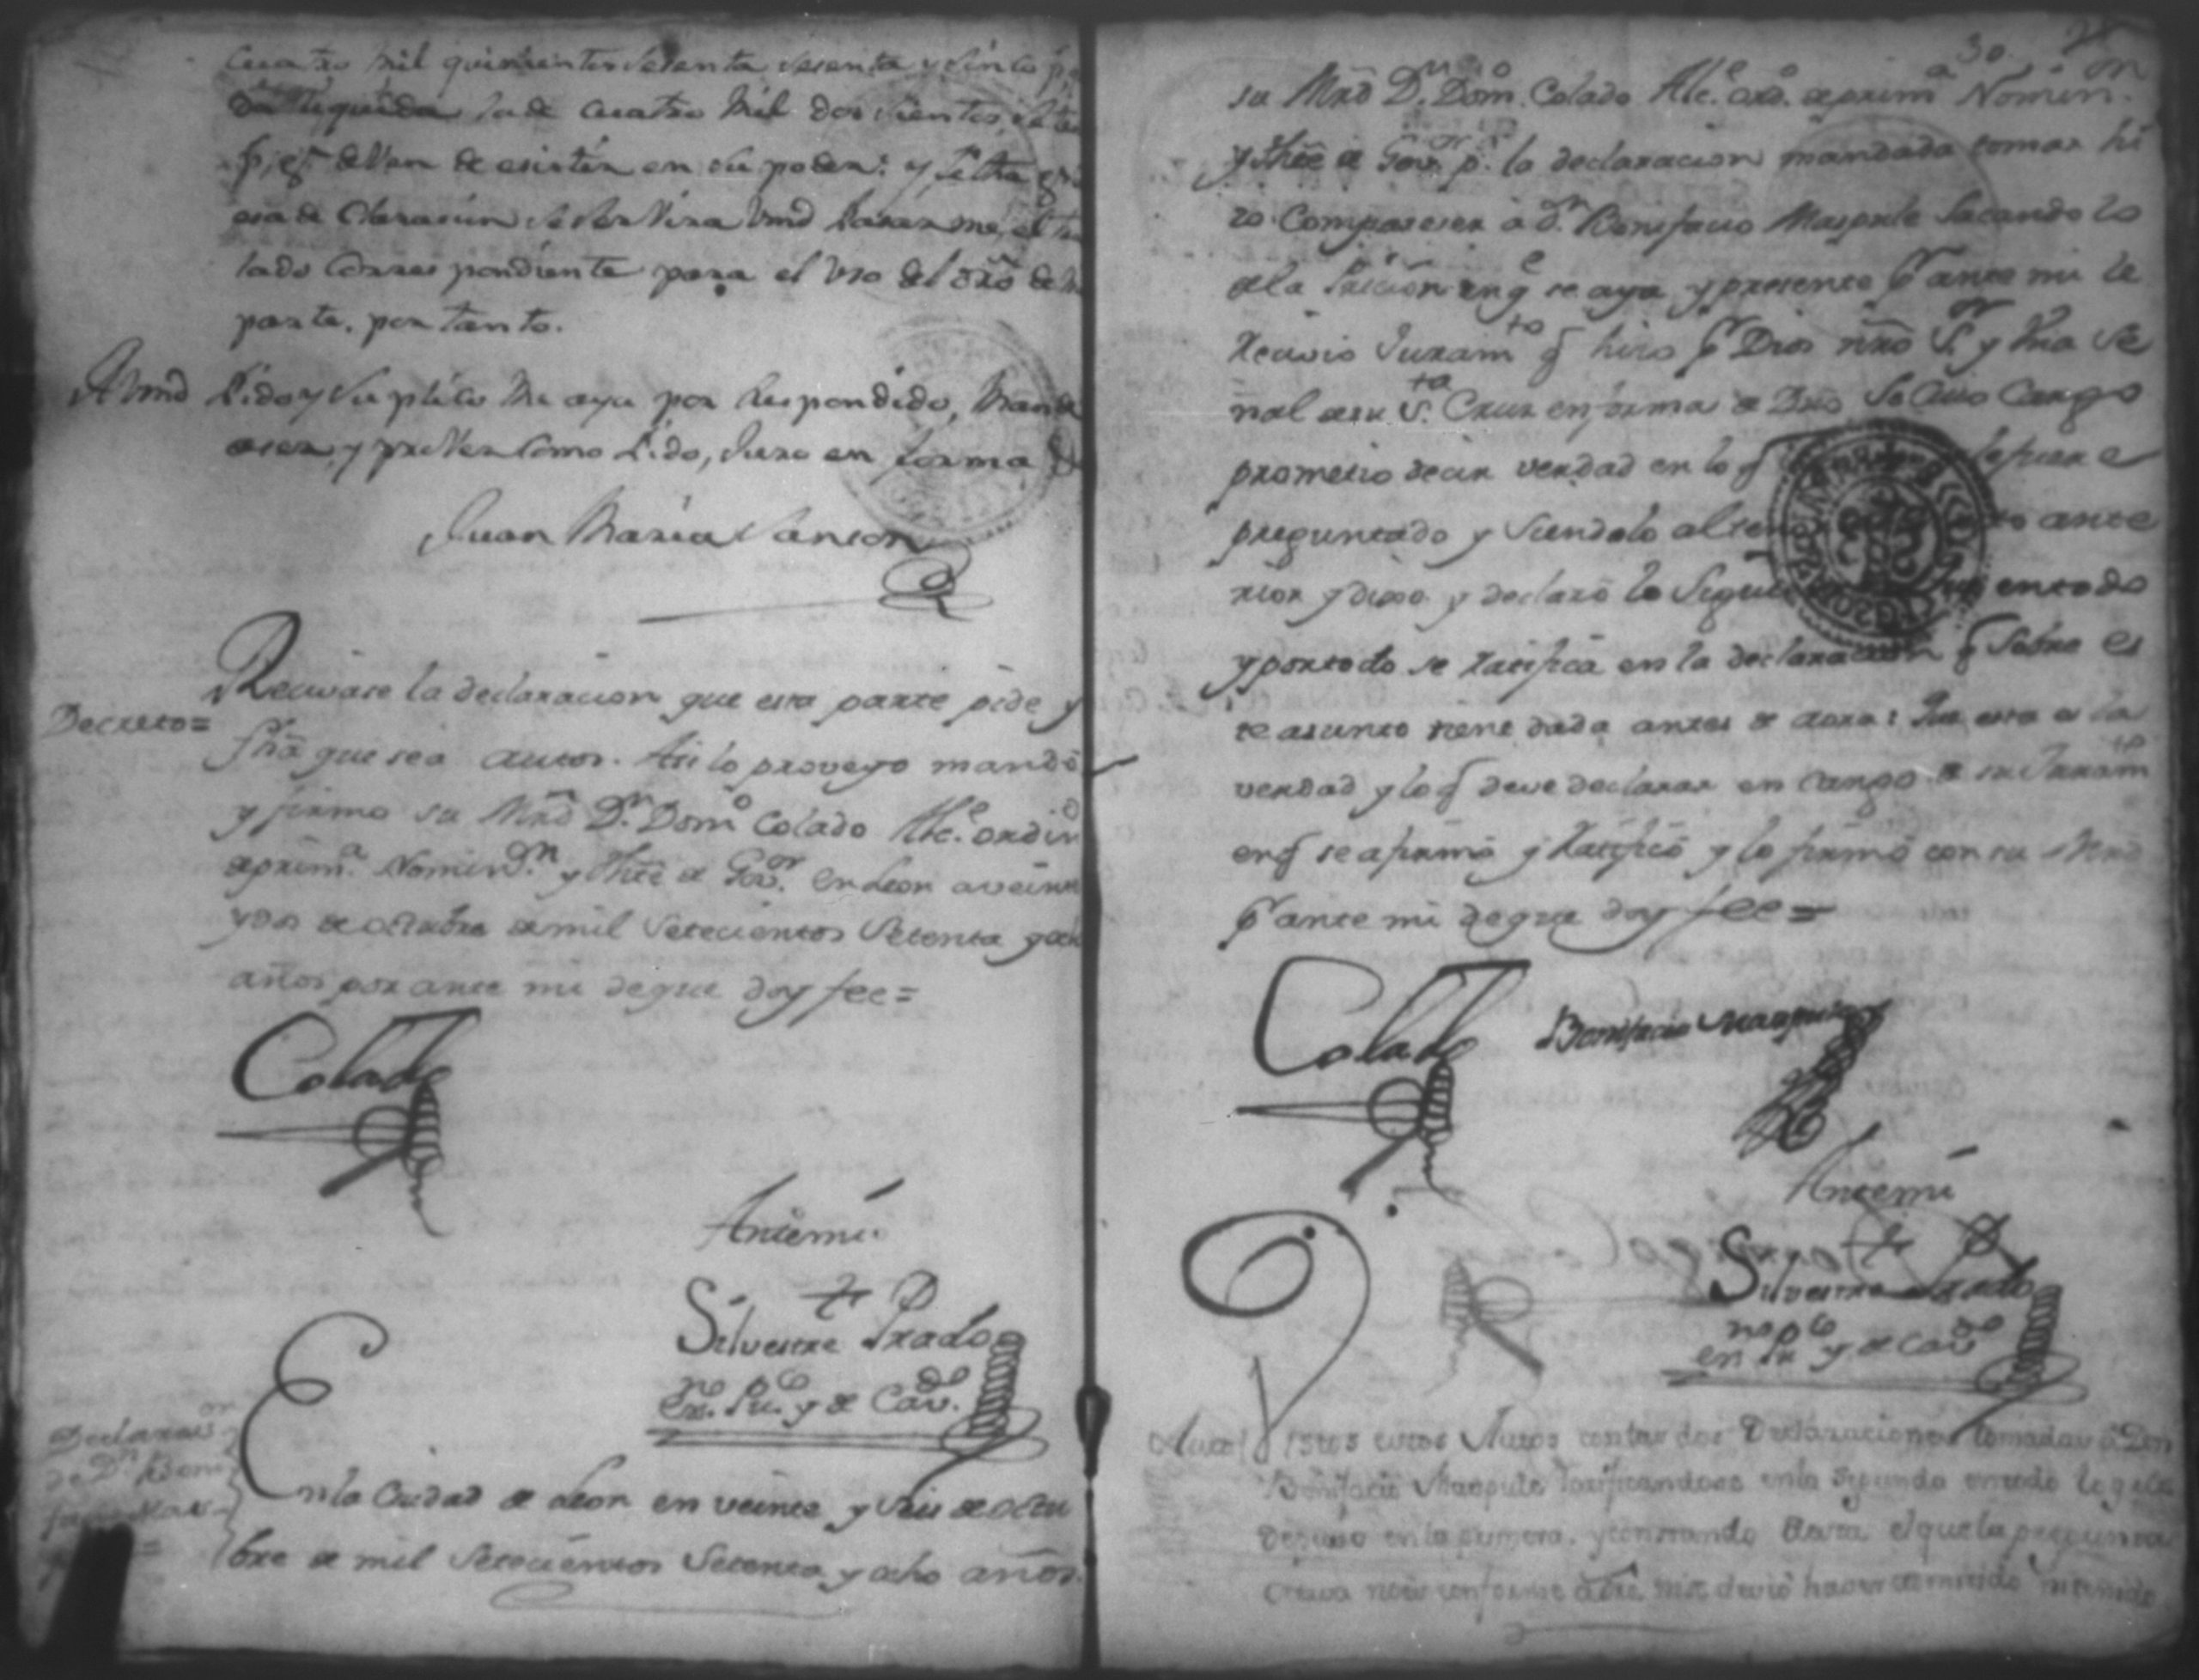 Cuatro mil quinientos setenta sesenta y sinco p.
la de cuatro mil dos sientos
p.s q.e deven de esistir en su poder: y fecha
esa de Clarasion se servira Vmd pasarme, el tras
lado Correspondiente para el uso del dro de mi
parte. por tanto.
A Vmd Pido y Suplico me aya por Respondido, mande
aser, y proveer Como Pido, Juro en forma
Juan Maria
Decreto=
Recivase la declaracion que esta parte pide y
fha que sea autos. Asi lo proveyo mandó
y firmo su Mrd D.n Dom.o Colado Alc.e ordin
de prim.a Nomin.on y Thte de Gov.or en Leon a veinte
y dos de octubre de mil Setecientos Setenta y och
años por ante mi de que doy fee=
Colado
Antemi
Silvestre Prado
en.no pu.co y de Cav.do
Declaraci.on
de D.n Boni
En la Ciudad de Leon en veinte y Seis de octu
bre de mil Setecientos Setenta y ocho años.
30
su Mrd D.n Dom.o Colado Alc.e ord.o de prim.a Nomin.on
y Thte de Gov.or p.a la declaracion mandada tomar hi
zo Compareser a d.n Bonifacio Maspule Sacandolo
de la Pricion en q.e se aya y presente p.r ante mi le
Recivio Juram.to q hizo p.r Dios nro S.r y Una Se
ñal de su S.ta Cruz en forma de Dro So Cuio Cargo
prometio decir verdad en lo q fuere
preguntado y Siendolo al ante
rior y dixo y declaró lo Sigui en todo
y por todo se Ratifica en la declaracion q Sobre es
te asunto tiene dada antes de aora: Que esta es la
verdad y lo q deve declarar en Cargo de su Juram.to
en q se afirmó y Ratificó y lo firmó con su Mrd
p.r ante mi de que doy fee=
Colado Bonifacio Maspule
Antemi
Silvestre Prado
en.no pu.co y de Cav.do
Auto Vistos estos Autos con las dos Declaraciones tomadas á Don
Bonifacio Maspule Ratificandose en la Segunda en todo lo q
Depuso en la primera, y constando el que la pregunta